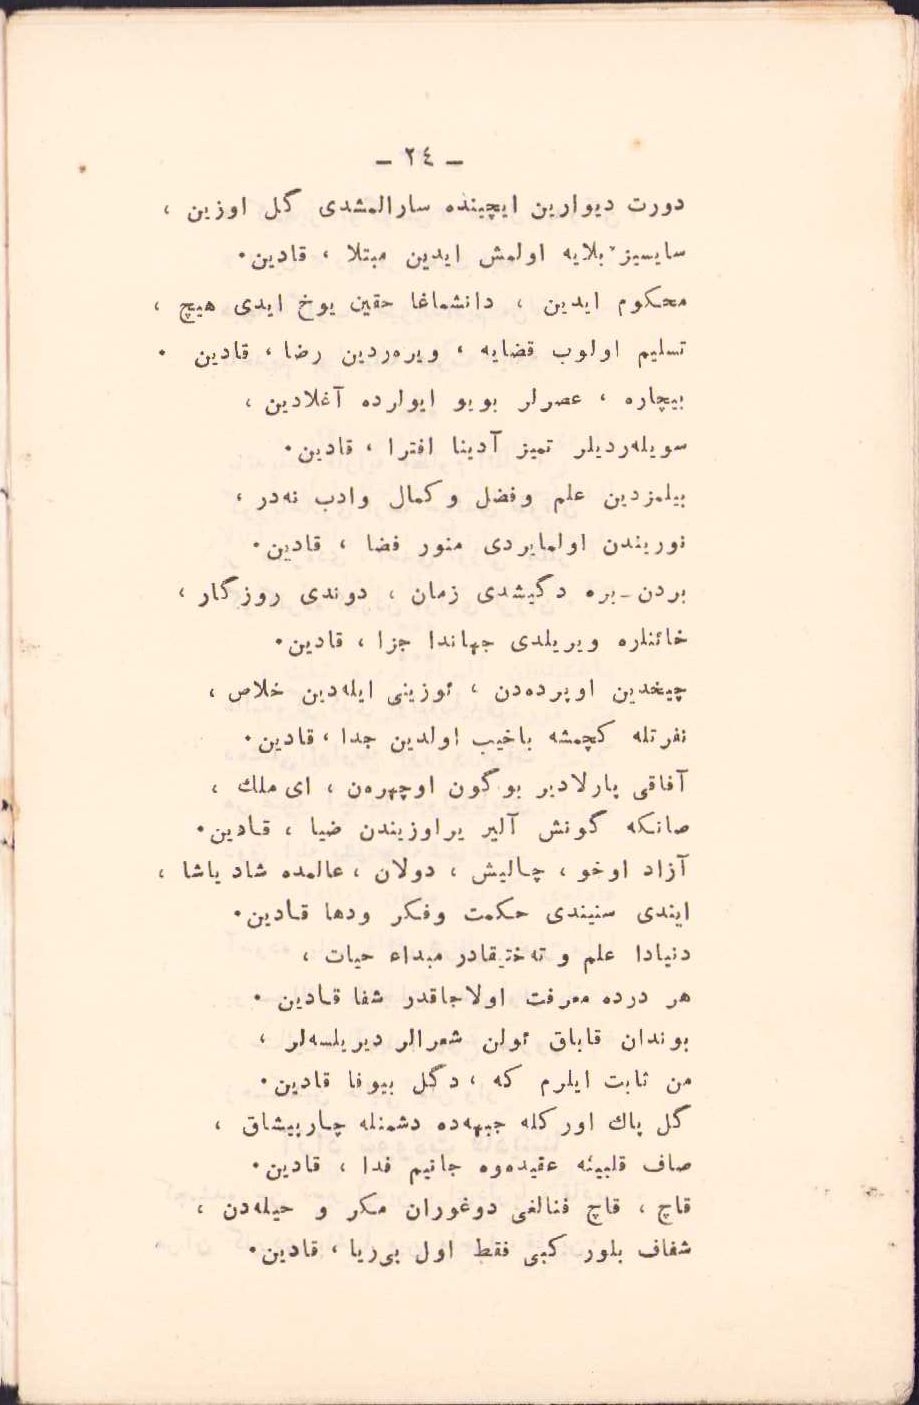 – ٢٤ –
دورت ديوارين ايچينده سارالمشدى گل اوزين ،
سايسيز بلايه اولمش ايدين مبتلا ، قادين٠
محكوم ايدين ، دانشماغا حقين يوخ ايدى هيچ ،
تسليم اولوب قضايه ، ويره‌ردين رضا ، قادين ٠
بيچاره ، عصرلر بويو ايولرده آغلادين ،
سويله‌رديلر تميز آدينا افترا ، قادين٠
بيلمزدين علم وفضل و كمال وادب نه‌در ،
نوريندن اولمايردى منور فضا ، قادين٠
بردن-بره دگيشدى زمان ، دوندى روزگار ،
خائنلره ويريلدى جهاندا جزا ، قادين٠
چيخدين اوپرده‌دن ، ئوزينى ايله‌دين خلاص ،
نفرتله كچمشه باخيب اولدين جدا ، قادين٠
آفاقى پارلادير بوگون اوچهره‌ن ، اى ملك ،
صانكه گونش آلير يراوزيندن ضيا ، قادين٠
آزاد اوخو ، چاليش ، دولان ، عالمده شاد ياشا ،
ايندى سنيندى حكمت وفكر ودها قادين٠
دنيادا علم و ته‌ختيقادر مبداء حيات ،
هر درده معرفت اولاجاقدر شفا قادين ٠
بوندان قاباق ئولن شعرالر ديريلسه‌لر ،
من ثابت ايلرم كه ، دگل بيوفا قادين٠
گل پاك اورکله جبهه‌ده دشمنله چارپيشاق ،
صاف قلبيئه عقيده‌وه جانيم فدا ، قادين٠
قاچ ، قاچ فنالغى دوغوران مكر و حيله‌دن ،
شفاف بلور كبى فقط اول بى‌ريا ، قادين٠